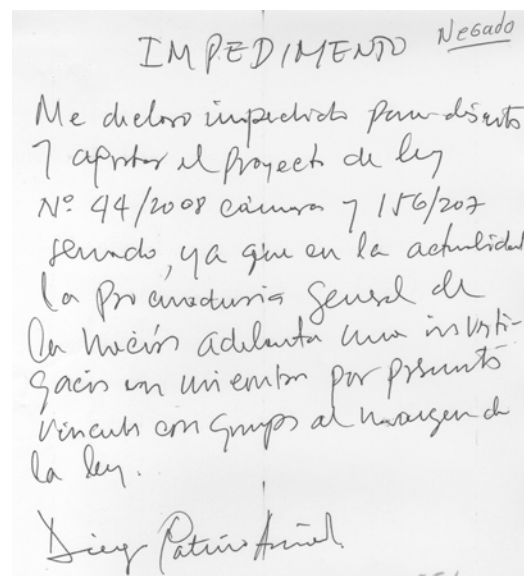 IMPEDIMENTO Negado
Me declaro impedido para discutir
y aprobar el proyecto de ley
Nº 44/2008 cámara y 156/207
senado, ya que en la actualidad
la Procuraduria General de
la Nación adelanta una investi-
gación en mi contra por presunto
vinculo con grupos al margen de
la ley.
Diego Patiño Amariles